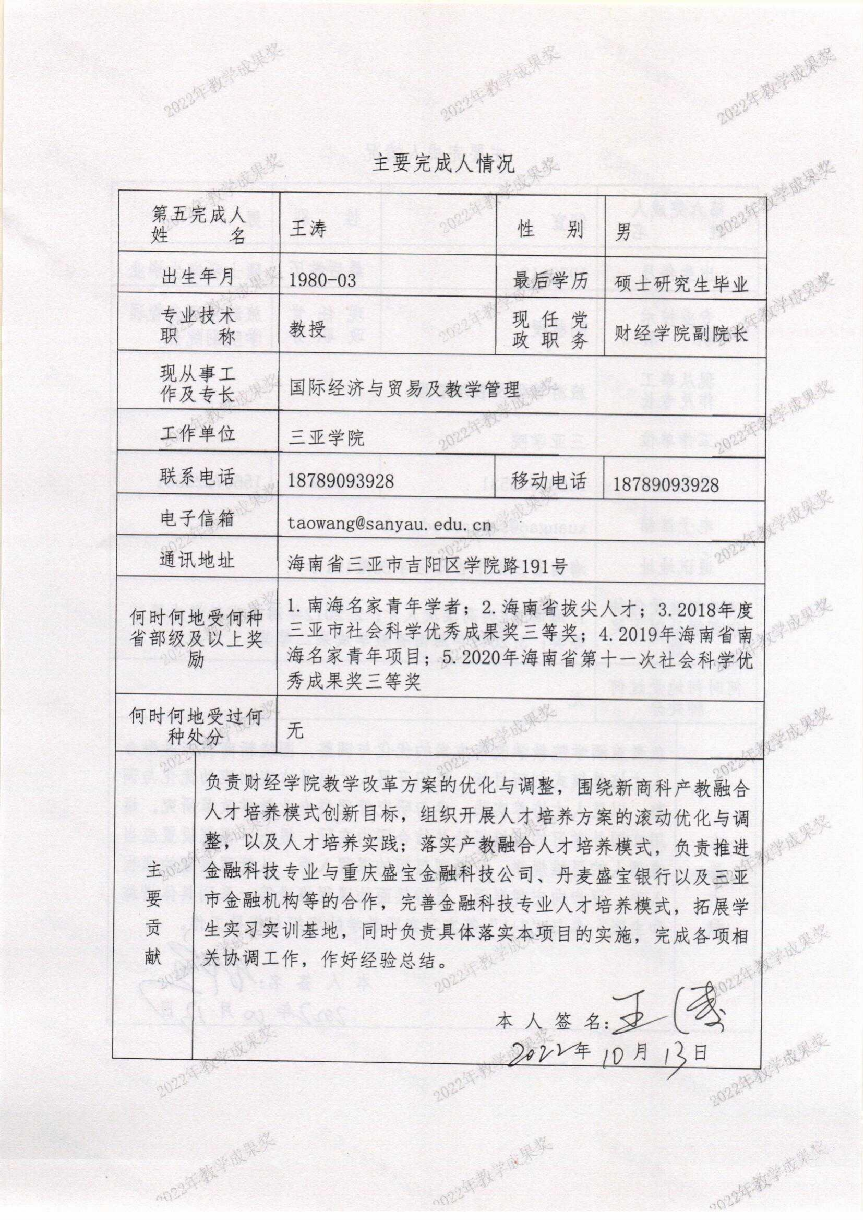 主要完成人情况
第五完成人
姓 名
王涛
性 别
男
出生年月
1980-03
最后学历
硕士研究生毕业
专业技术
职 称
教授
现 任 党
政 职 务
财经学院副院长
现从事工
作及专长
国际经济与贸易及教学管理
工作单位
三亚学院
联系电话
18789093928
移动电话
18789093928
电子信箱
taowang@sanyau.edu.cn
通讯地址
海南省三亚市吉阳区学院路191号
何时何地受何种
省部级及以上奖
励
1.南海名家青年学者；2.海南省拔尖人才；3.2018年度
三亚市社会科学优秀成果奖三等奖；4.2019年海南省南
海名家青年项目；5.2020年海南省第十一次社会科学优
秀成果奖三等奖
何时何地受过何
种处分
无
主
要
贡
献
负责财经学院教学改革方案的优化与调整，围绕新商科产教融合
人才培养模式创新目标，组织开展人才培养方案的滚动优化与调
整，以及人才培养实践；落实产教融合人才培养模式，负责推进
金融科技专业与重庆盛宝金融科技公司、丹麦盛宝银行以及三亚
市金融机构等的合作，完善金融科技专业人才培养模式，拓展学
生实习实训基地，同时负责具体落实本项目的实施，完成各项相
关协调工作，作好经验总结。
本 人 签 名：王涛
2022年 10月 13日
2022年教学成果奖